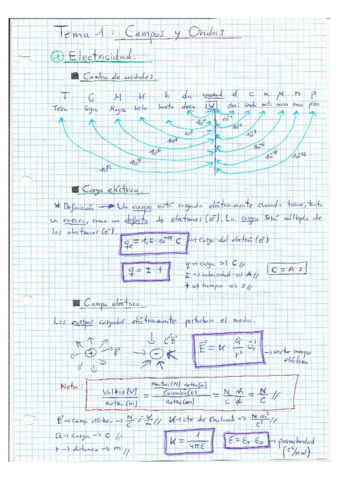 Tema 1: Campos y Ondas
1) Electricidad.
Cambio de unidades.
T G M K h da unidad d c m μ n p
Tera Giga Mega kilo hecto deca [V] deci centi mili micro nano pico
Carga eléctrica.
* Definición → Un cuerpo está cargado eléctricamente cuando tiene, tanto
un exceso, como un defecto de electrones (e⁻). La carga será múltiplo de
los electrones (e⁻).
→ Carga del electrón (e⁻)
q = I · t
q → carga → C //
I → intensidad → A //
t → tiempo → s //
C = A · s
Campo eléctrico.
Los cuerpos cargados eléctricamente perturban el medio.
→ vector campo
eléctrico
Nota:
Voltio [V] / metro [m] = Newton [N] · metro [m] / Culombio [C] / metro [m] = N · m / C · m = N / C //
E → Campo eléctrico → N/C ó V/m // K → cte de Coulomb → N·m²/C² //
Q → Carga → C //
r → distancia → m //
K = 1 / 4πε
ε = εr · ε0 → permitividad
(C²/N·m²)